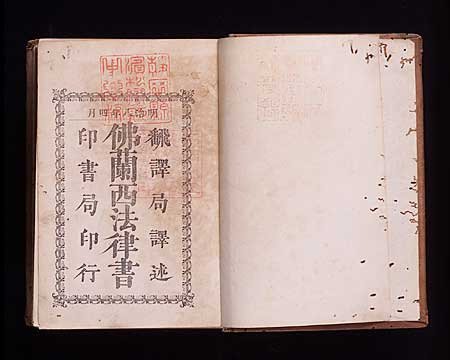 明治八年四月
飜譯局譯述
佛蘭西法律書
印書局印行